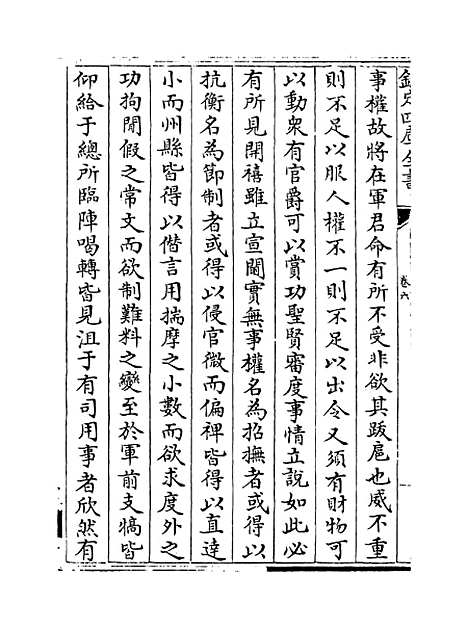 欽定四庫全書
卷六
事權故將在軍君命有所不受非欲其跋扈也威不重
則不足以服人權不一則不足以出令又須有財物可
以動衆有官爵可以賞功聖賢審度事情立說如此必
有所見開禧雖立宣閫實無事權名為招撫者或得以
抗衡名為節制者或得以侵官微而偏裨皆得以直達
小而州縣皆得以僣言用揣摩之小數而欲求度外之
功拘閒假之常文而欲制難料之變至於軍前支犒皆
仰給于總所臨陣喝轉皆見沮于有司用事者欣然有